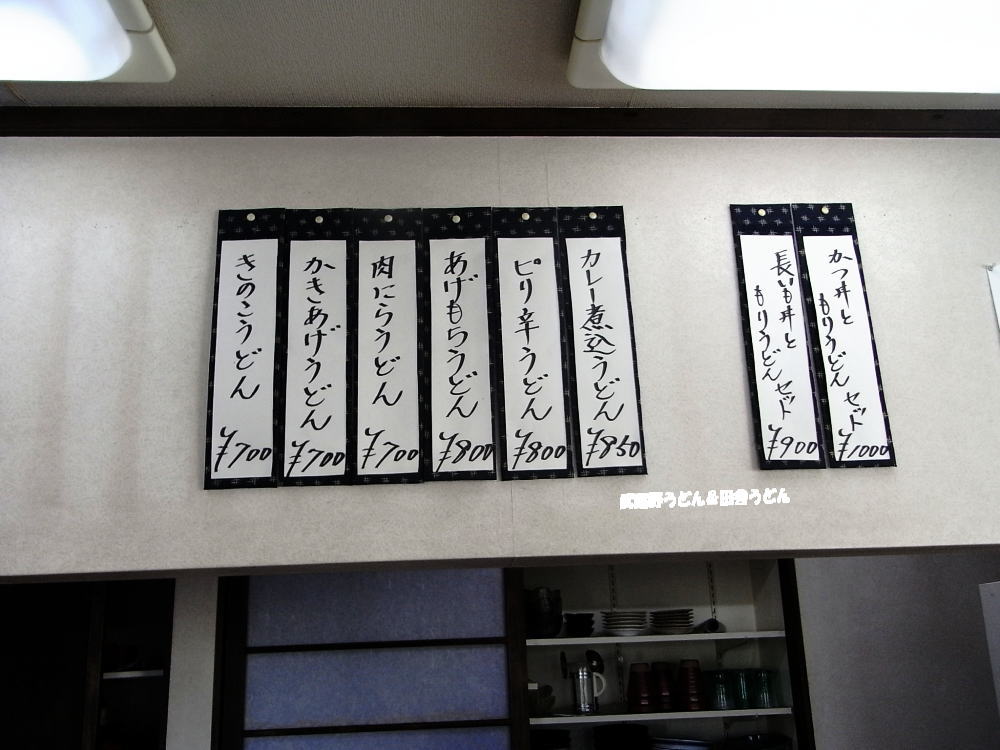 かつ丼と
もりうどん セット
¥1000
長いも丼と
もりうどん セット
¥900
カレー煮込うどん
¥850
ピリ辛うどん
¥800
あげもちうどん
¥800
肉にらうどん
¥700
かきあげうどん
¥700
きのこうどん
¥700
武蔵野うどん&田舎うどん